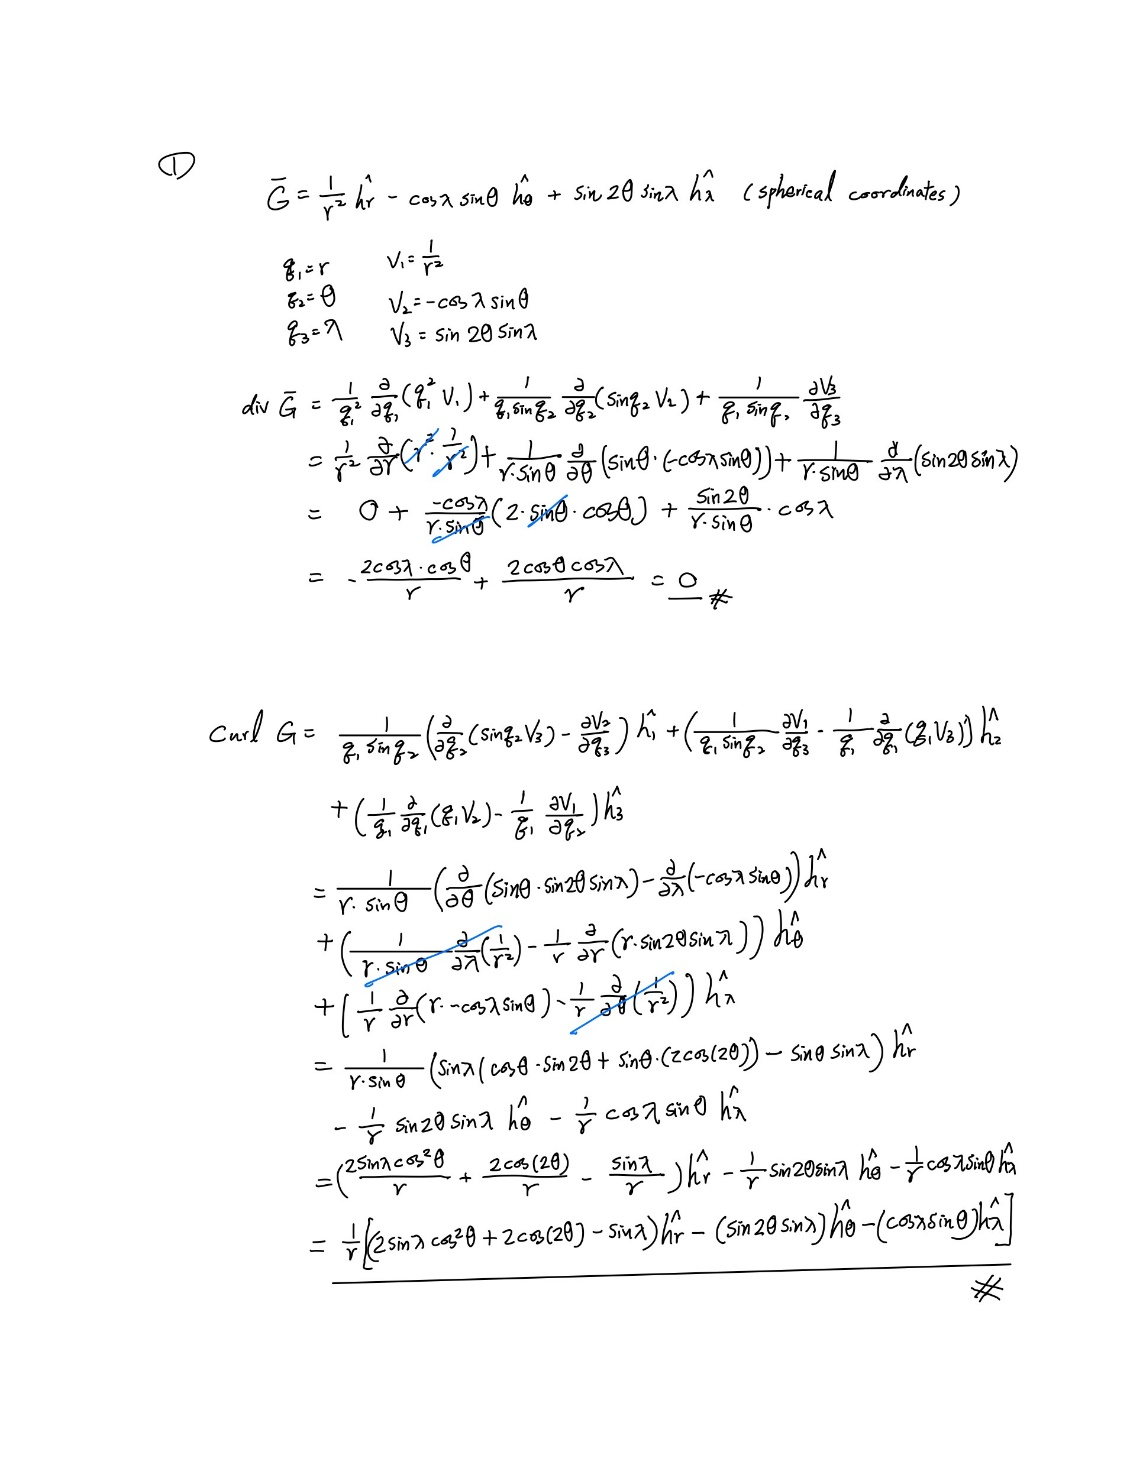 ①
G̅ = 1/r² ĥr - cosλ sinθ ĥθ + sin2θ sinλ ĥλ (spherical coordinates)
q₁=r V₁=1/r²
q₂=θ V₂=-cosλ sinθ
q₃=λ V₃=sin2θ sinλ
div G̅ = 1/q₁² ∂/∂q₁(q₁² V₁) + 1/(q₁ sinq₂) ∂/∂q₂(sinq₂ V₂) + 1/(q₁ sinq₂) ∂V₃/∂q₃
= 1/r² ∂/∂r(r²·1/r²) + 1/(r·sinθ) ∂/∂θ(sinθ·(-cosλsinθ)) + 1/(r·sinθ) ∂/∂λ(sin2θ sinλ)
= 0 + -cosλ/(r·sinθ)(2·sinθ·cosθ) + sin2θ/(r·sinθ)·cosλ
= -2cosλ·cosθ/r + 2cosθcosλ/r = 0 #
Curl G = 1/(q₁ sinq₂)(∂/∂q₂(sinq₂V₃) - ∂V₂/∂q₃)ĥ₁ + (1/(q₁ sinq₂) ∂V₁/∂q₃ - 1/q₁ ∂/∂q₁(q₁V₃))ĥ₂
+ (1/q₁ ∂/∂q₁(q₁V₂) - 1/q₁ ∂V₁/∂q₂)ĥ₃
= 1/(r·sinθ)(∂/∂θ(sinθ·sin2θ sinλ) - ∂/∂λ(-cosλ sinθ))ĥr
+ (1/(r·sinθ) ∂/∂λ(1/r²) - 1/r ∂/∂r(r·sin2θsinλ))) ĥθ
+ (1/r ∂/∂r(r·-cosλsinθ) - 1/r ∂/∂θ(1/r²))) ĥλ
= 1/(r·sinθ) (sinλ(cosθ·sin2θ + sinθ·(2cos(2θ)) - sinθ sinλ) ĥr
- 1/r sin2θ sinλ ĥθ - 1/r cosλ sinθ ĥλ
= (2sinλcos²θ/r + 2cos(2θ)/r - sinλ/r)ĥr - 1/r sin2θsinλ ĥθ - 1/r cosλsinθ ĥλ
= 1/r[(2sinλ cos²θ + 2cos(2θ) - sinλ)ĥr - (sin2θ sinλ)ĥθ - (cosλsinθ)ĥλ]
#